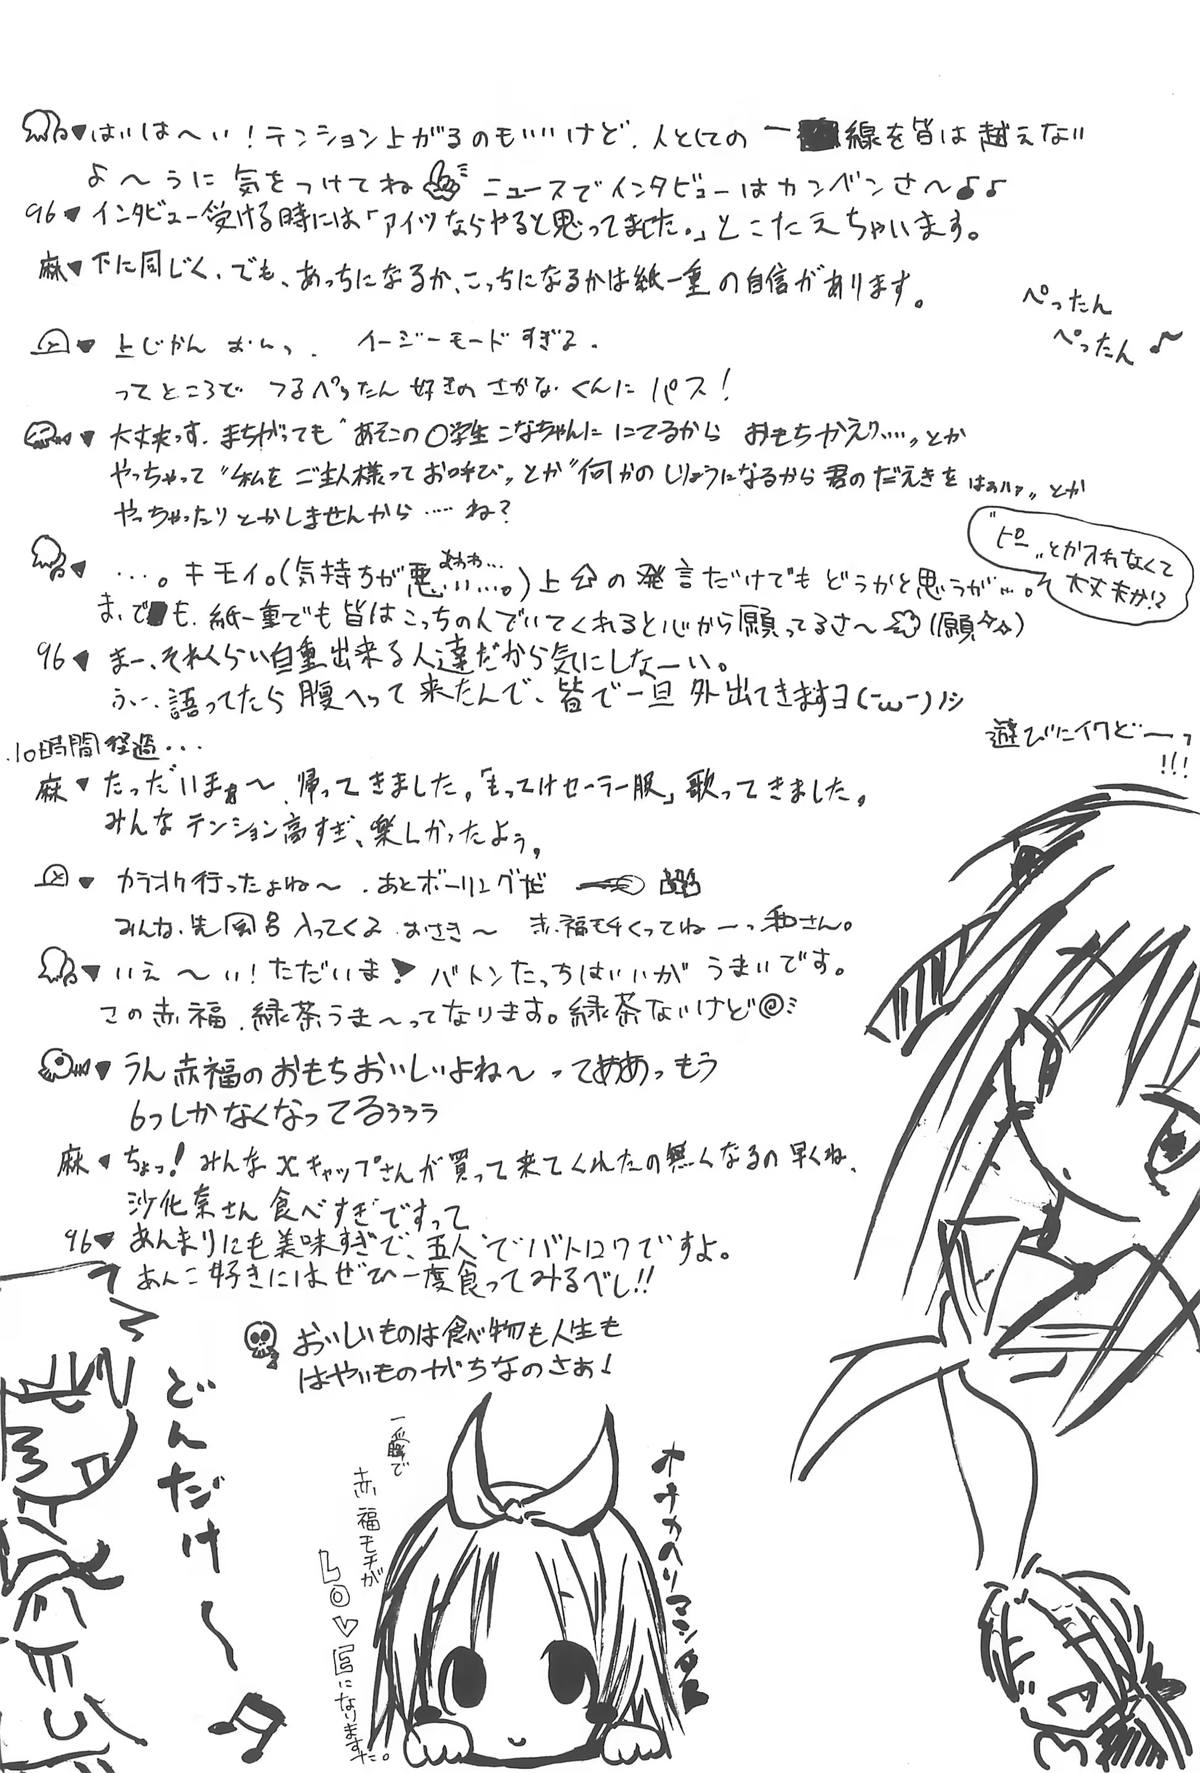 はいは〜い！テンション上がるのもいいけど、人としての一線を皆は越えない
よ〜うに気をつけてね ニュースでインタビューはカンベンさ〜♪♪
96♥インタビュー受ける時には「アイツならやると思ってました。」とこたえちゃいます。
麻♥下に同じく、でも、あっちになるか、こっちになるかは紙一重の自信があります。
ぺったん
ぺったん♪
上じかん イージーモードすぎる。
ってところで つるぺったん好きのさかなくんにパス！
大丈夫っす、まちがっても“あそこの〇学生こなちゃんににてるから おもちかえり……”とか
やっちゃって“私をご主人様ってお呼び”とか“何かのしりょうになるから君のだえきをはぁハァ”とか
やっちゃったりとかしませんから……ね？
“ピー”とか入れなくて
大丈夫か!?
…。キモイ。(気持ちが悪い……。)上の発言だけでもどうかと思うが…。
ま、でも、紙一重でも皆はこっちのんでいてくれると心から願ってるさ〜(願☆☆)
96♥まー、それくらい自重出来る人達だから気にしなーい。
ふぃー、語ってたら腹へって来たんで、皆で一旦外出てきますヨ(-ω-)ノシ
遊びにイクどーーっ
!!!
10時間経過...
麻♥たっだいまぁ〜、帰ってきました。「もってけセーラー服」歌ってきました。
みんなテンション高すぎ、楽しかったよぅ。
カラオケ行ったよね〜、あとボーリングだ
みんな、先風呂入ってくる おさき〜 赤福モチくってねーっ和さん。
♥いえ〜い！ただいま！バトンたっちはいいがうまいです。
この赤福、緑茶うま〜ってなります。緑茶ないけど
♥うん赤福のおもちおいしいよね〜ってああっもう
6っしかなくなってるぅぅぅ
麻♥ちょっ！みんなXキャップさんが買って来てくれたの無くなるの早くね、
沙化奈さん食べすぎですって
96♥あんまりにも美味すぎで、五人でバトロワですよ。
あんこ好きにはぜひ一度食ってみるべし!!
おいしいものは食べ物も人生も
はやいものがちなのさぁ！
どんだけ〜♪
一瞬で
赤福モチが
LOVEになりますた。
オナカヘリマシタ